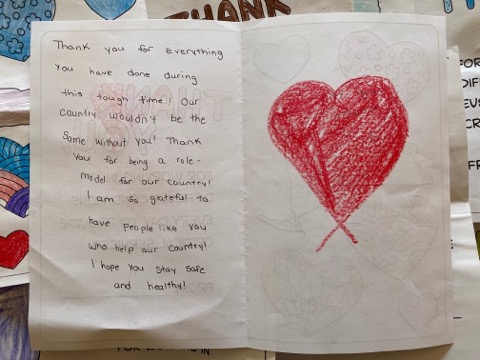 THANK
Thank you for everything
you have done during
this tough time! Our
country wouldn't be the
same without you! Thank
you for being a role-
model for our country!
I am so grateful to
have people like you
who help our country!
I hope you stay safe
and healthy!
FOR
DIF
EVE
CR
FR